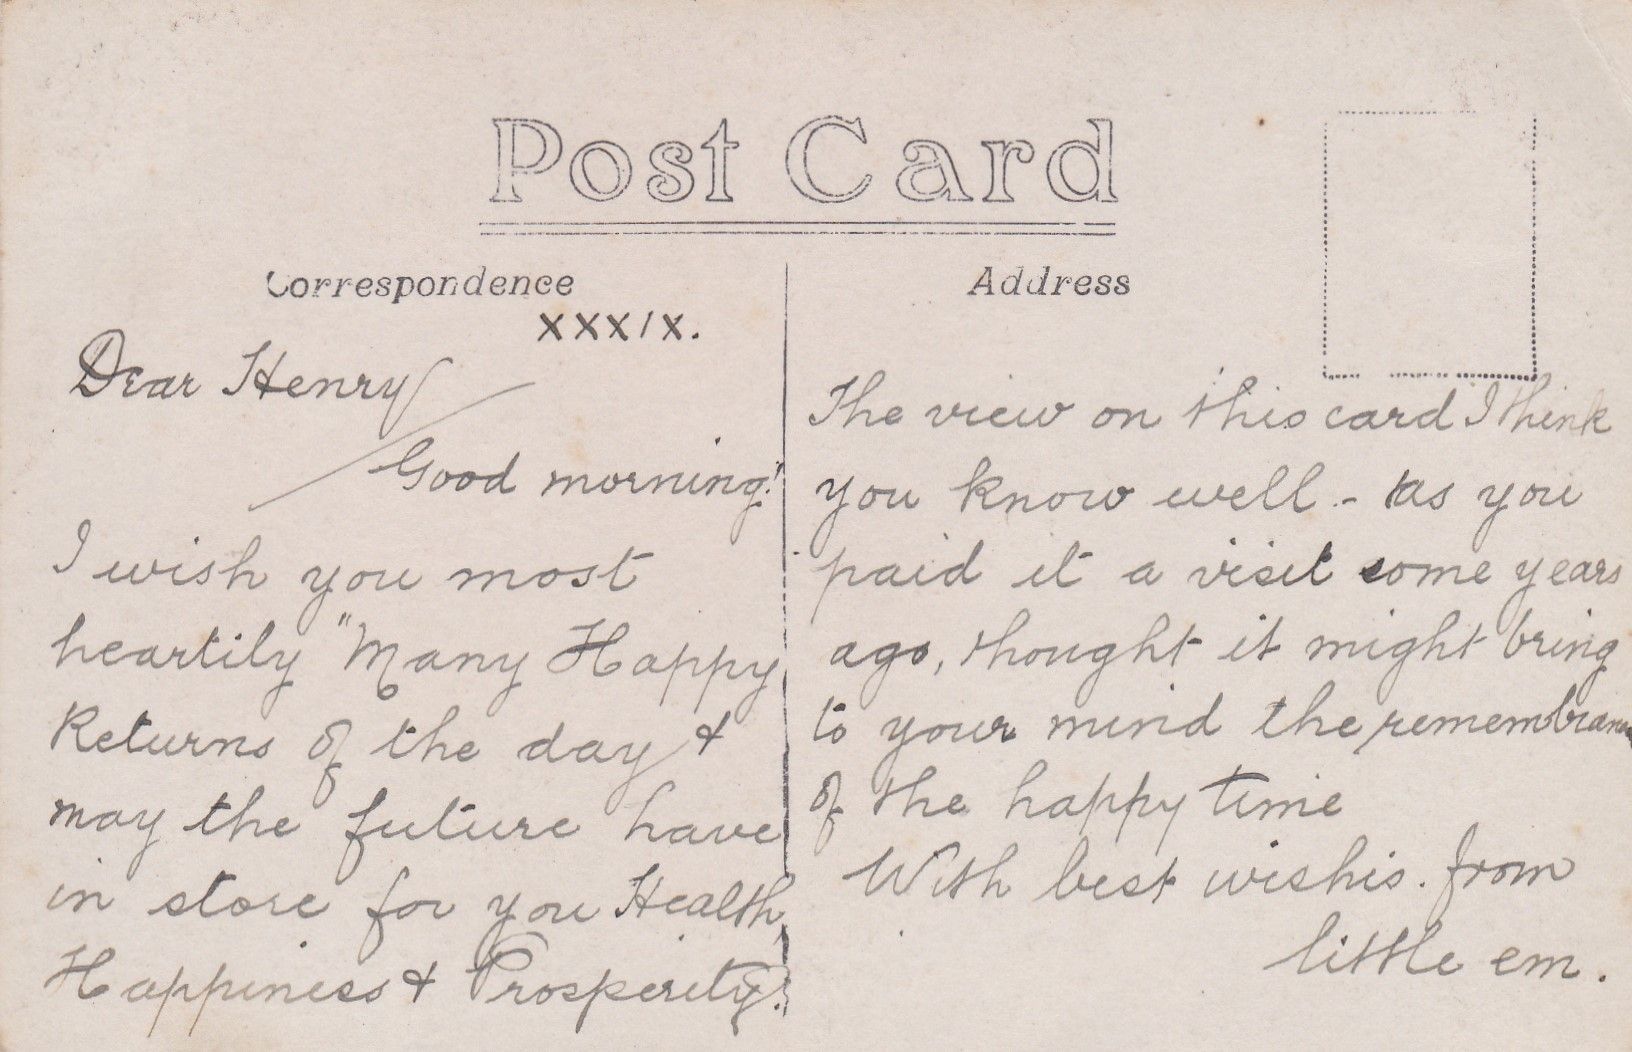 Post Card
Correspondence
XXXIX.
Dear Henry
Good morning!
I wish you most
heartily "Many Happy
Returns of the day &
may the future have
in store for you Health,
Happiness & Prosperity.
Address
The view on this card I think
you know well - as you
paid it a visit some years
ago, thought it might bring
to your mind the remembrance
of the happy time
With best wishis. from
little em.